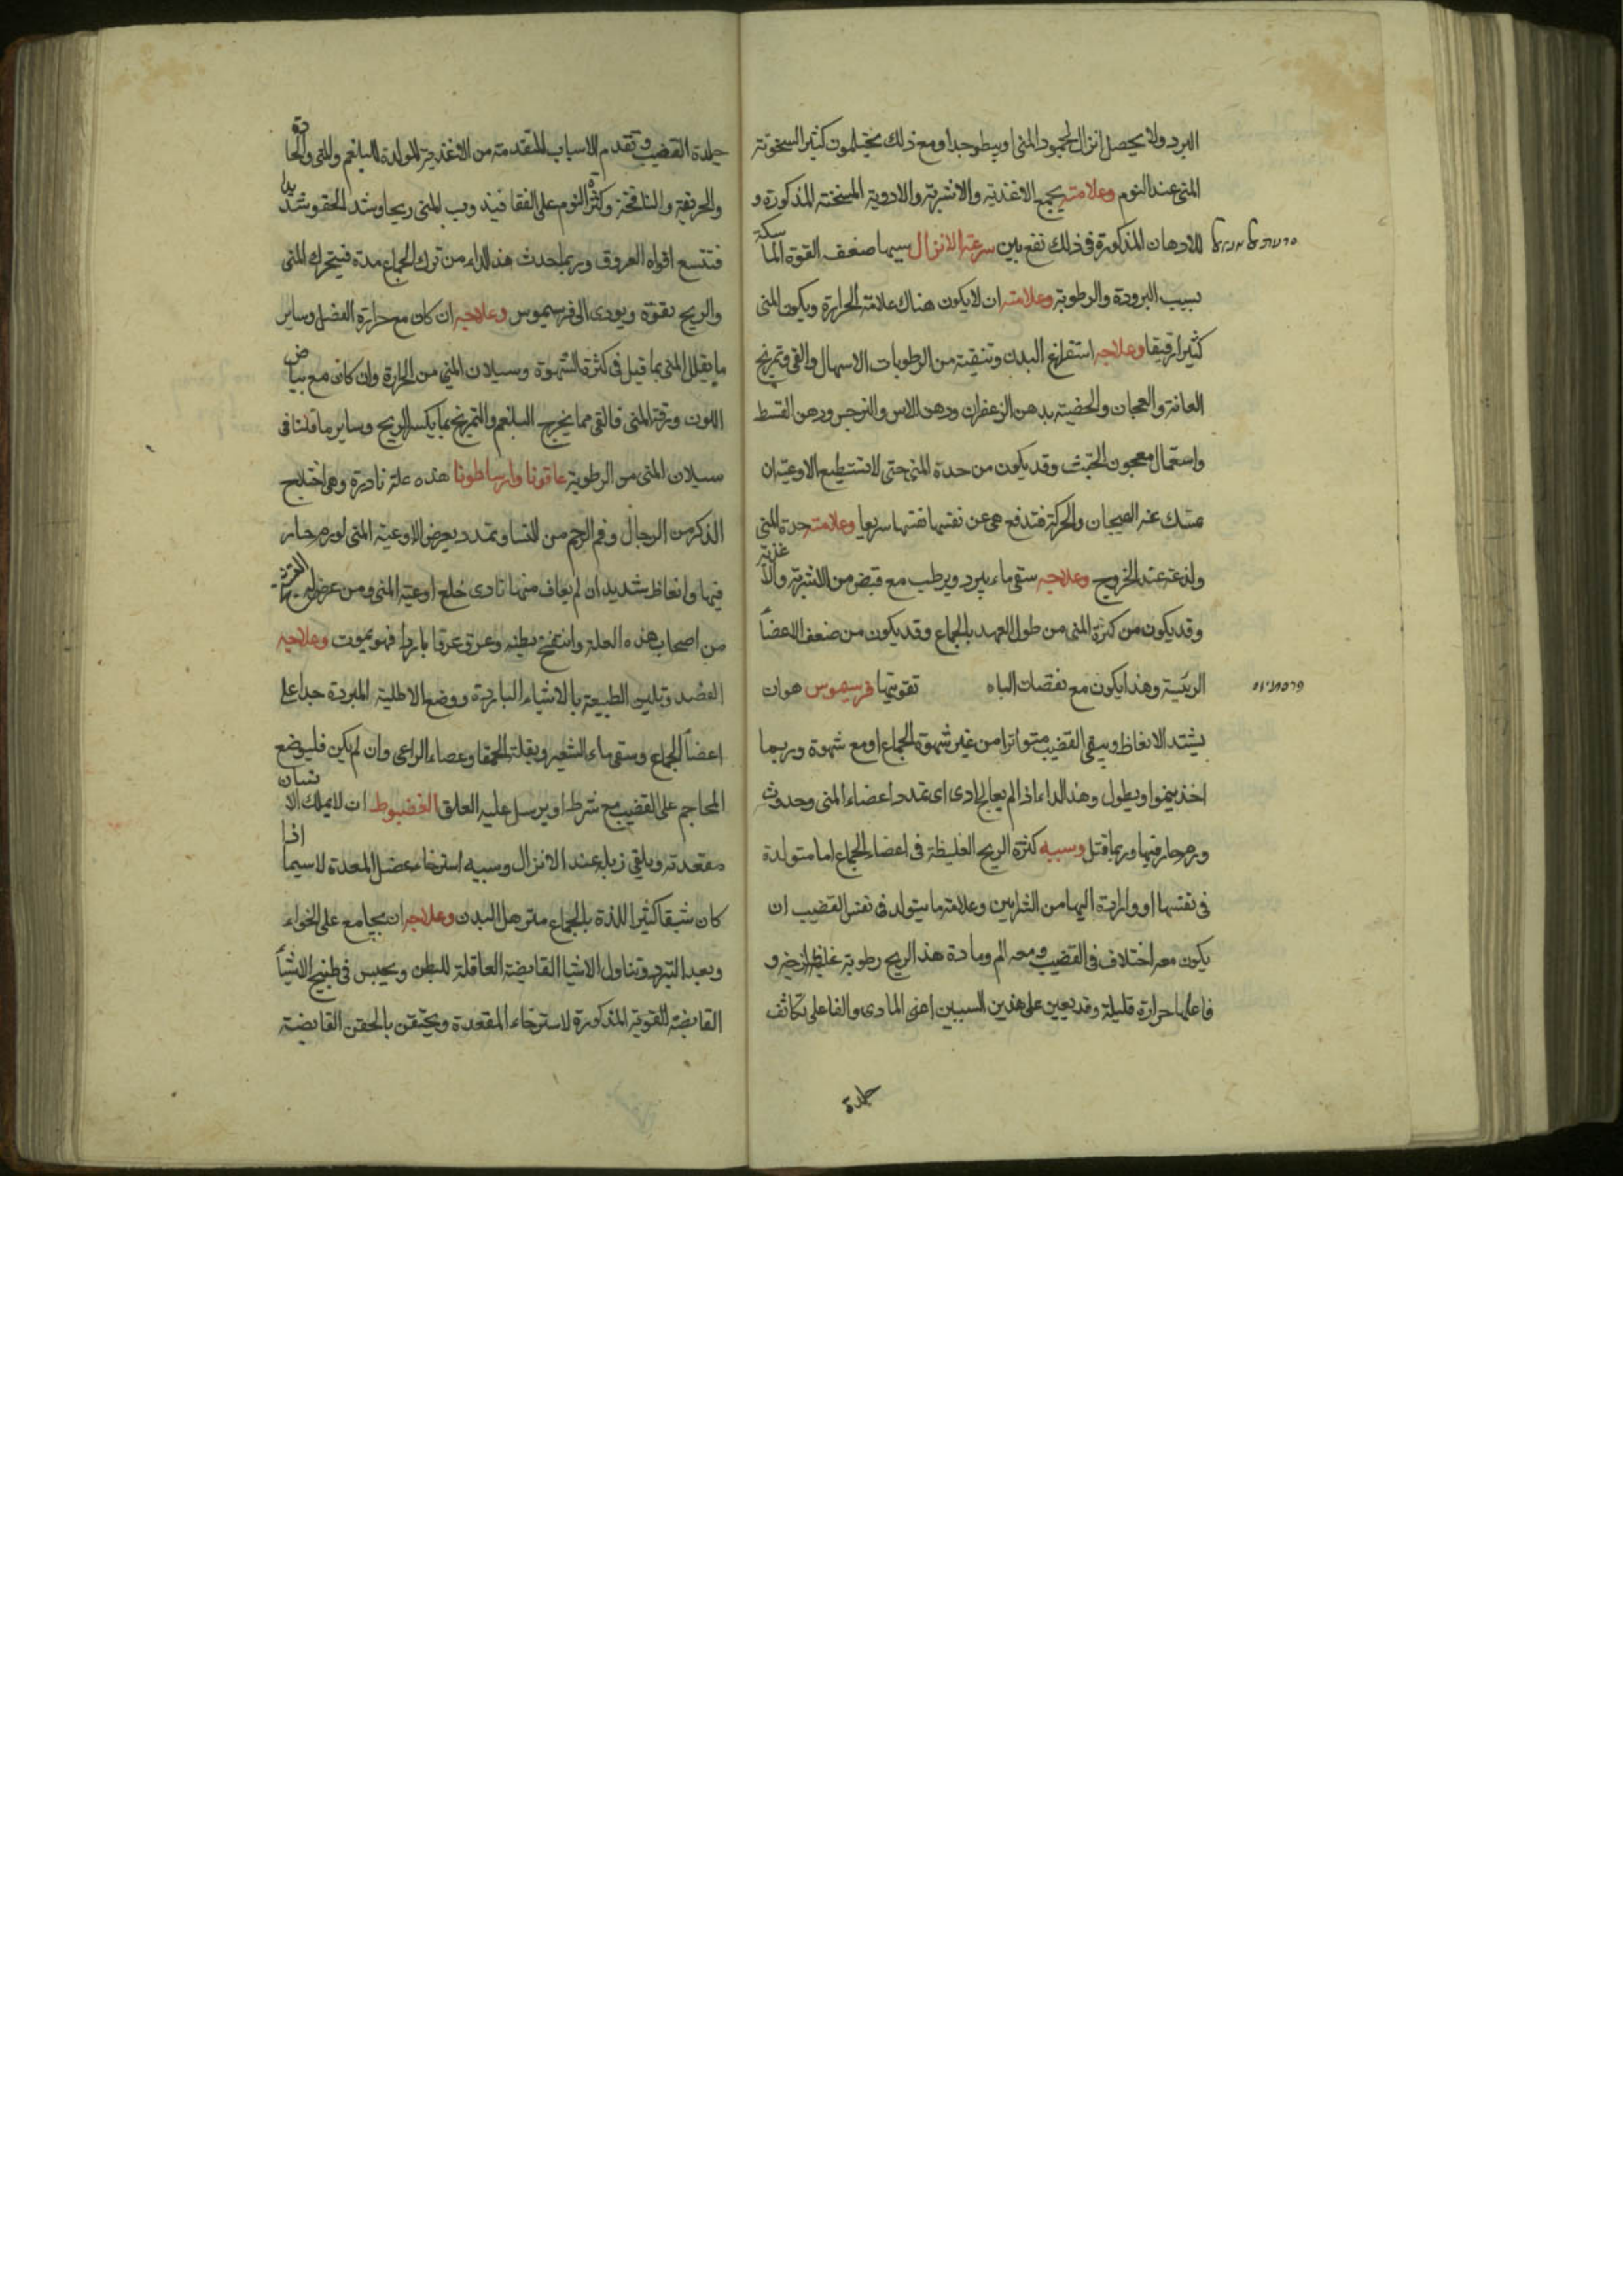 البرد ولا يحصل انزال لجمود المنى او يبطو جدا ومع ذلك يحتلمون كثير السخونة
المنى عند النوم وعلامته يجمع الاغذية والاشربة والادوية المسخنة المذكورة و
للادهان المذكورة فى ذلك نفع بين سرعة الانزال سببها ضعف القوة الماسكة
بسبب البرودة والرطوبة وعلامته ان لا يكون هناك علامة الحرارة ويكون المنى
كثيرا رقيقا وعلاجه استفراغ البدن وتنقيته من الرطوبات الاسهال والقى وتمريخ
العانة والعجان والخصية بدهن الزعفران ودهن الاس والنرجس ودهن القسط
واستعمال معجون الخبث وقد يكون من حدة المنى حتى لا تستطيع الاوعية ان
تمسك عنه الهيجان والحركة فتدفع هى عن نفسها نفسها سريعا وعلامته حدة المنى
ولذعته عند الخروج وعلاجه سقى ماء يبرد ويرطب مع قبض من الاشربة والاغذية
وقد يكون من كثرة المنى من طول العهد بالجماع وقد يكون من ضعف الاعضاء
الرئيسة وهذا يكون مع نقصان الباه تقويتها فرسيموس هو ان
يشتد الانعاظ ويبقى القضيب متواترا من غير شهوة الجماع او مع شهوة وربما
اخذ ينمو او يطول وهذا الداء اذا لم يعالج ادى اى تمدد اعضاء المنى وحدوث
ورم حار فيها وربما قتل وسببه كثرة الريح الغليظة فى اعضاء الجماع اما متولدة
فى نفسها او واردة اليها من الشرايين وعلامة ما يتولد فى نفس القضيب ان
يكون معه اختلاف فى القضيب ومعه الم ومادة هذ الريح رطوبة غليظة لزجة و
فاعلها حرارة قليلة وقد يعين على هذين السببين اعنى المادى والفاعلى تكاثف
جلدة
סרעת אל אנזאל
פרסמיוס
جلدة القضيب وتقدم الاسباب المتقدمة من الاغذية المولدة للبلغم والمنى والحادة
والحريفة والنافخة وكثرة النوم على القفا فيذوب المنى ريحا وشد الحقو شديدا
فتتسع افواه العروق وربما حدث هذ الداء من ترك الجماع مدة فيتحرك المنى
والريح بقوة ويودى الى فرسيموس وعلاجه ان كان مع حرارة الفصد وساير
ما يقلل المنى بما قيل فى كثرة الشهوة وسيلان المنى من الحرارة وان كان مع بياض
اللون ورقة المنى فالقى مما يخرج البلغم والتمريخ بما يكسر الريح وساير ما قلنا فى
سيلان المنى من الرطوبة عاقونا وارساطونا هذه علة نادرة وهى اختلاج
الذكر من الرجال وفم الرحم من النسا وتمدد يعرض لاوعية المنى لورم حار
فيها وانعاظ شديد ان لم يعاف منها تادى خلع اوعية المنى ومن عرض له التشنج
من اصحاب هذه العلة وانتفخ بطنه وعرق عرقا باردا فهو يموت وعلاجه
الفصد وتليين الطبيعة بالاشياء الباردة ووضع الاطلية المبردة جدا على
اعضا الجماع وسقى ماء الشعير وبقلة الحمقا وعصاء الراعى وان لم يكن فليوضع
المحاجم على القضيب مع شرط او يرسل عليه العلق العضيوط ان لا يملك الانسان
مقعدته ويلقى زبله عند الانزال وسببه استرخاء عضل المعدة لا سيما اذا
كان شبقا كثير اللذة بالجماع مترهل البدن وعلاجه ان يجامع على الخواء
وبعد التبرد وتناول الاشيا القابضة العاقلة للبطن ويحبس فى طبيخ الاشياء
القابضة المقوية المذكورة لاسترخاء المقعدة ويحتقن بالحقن القابضة